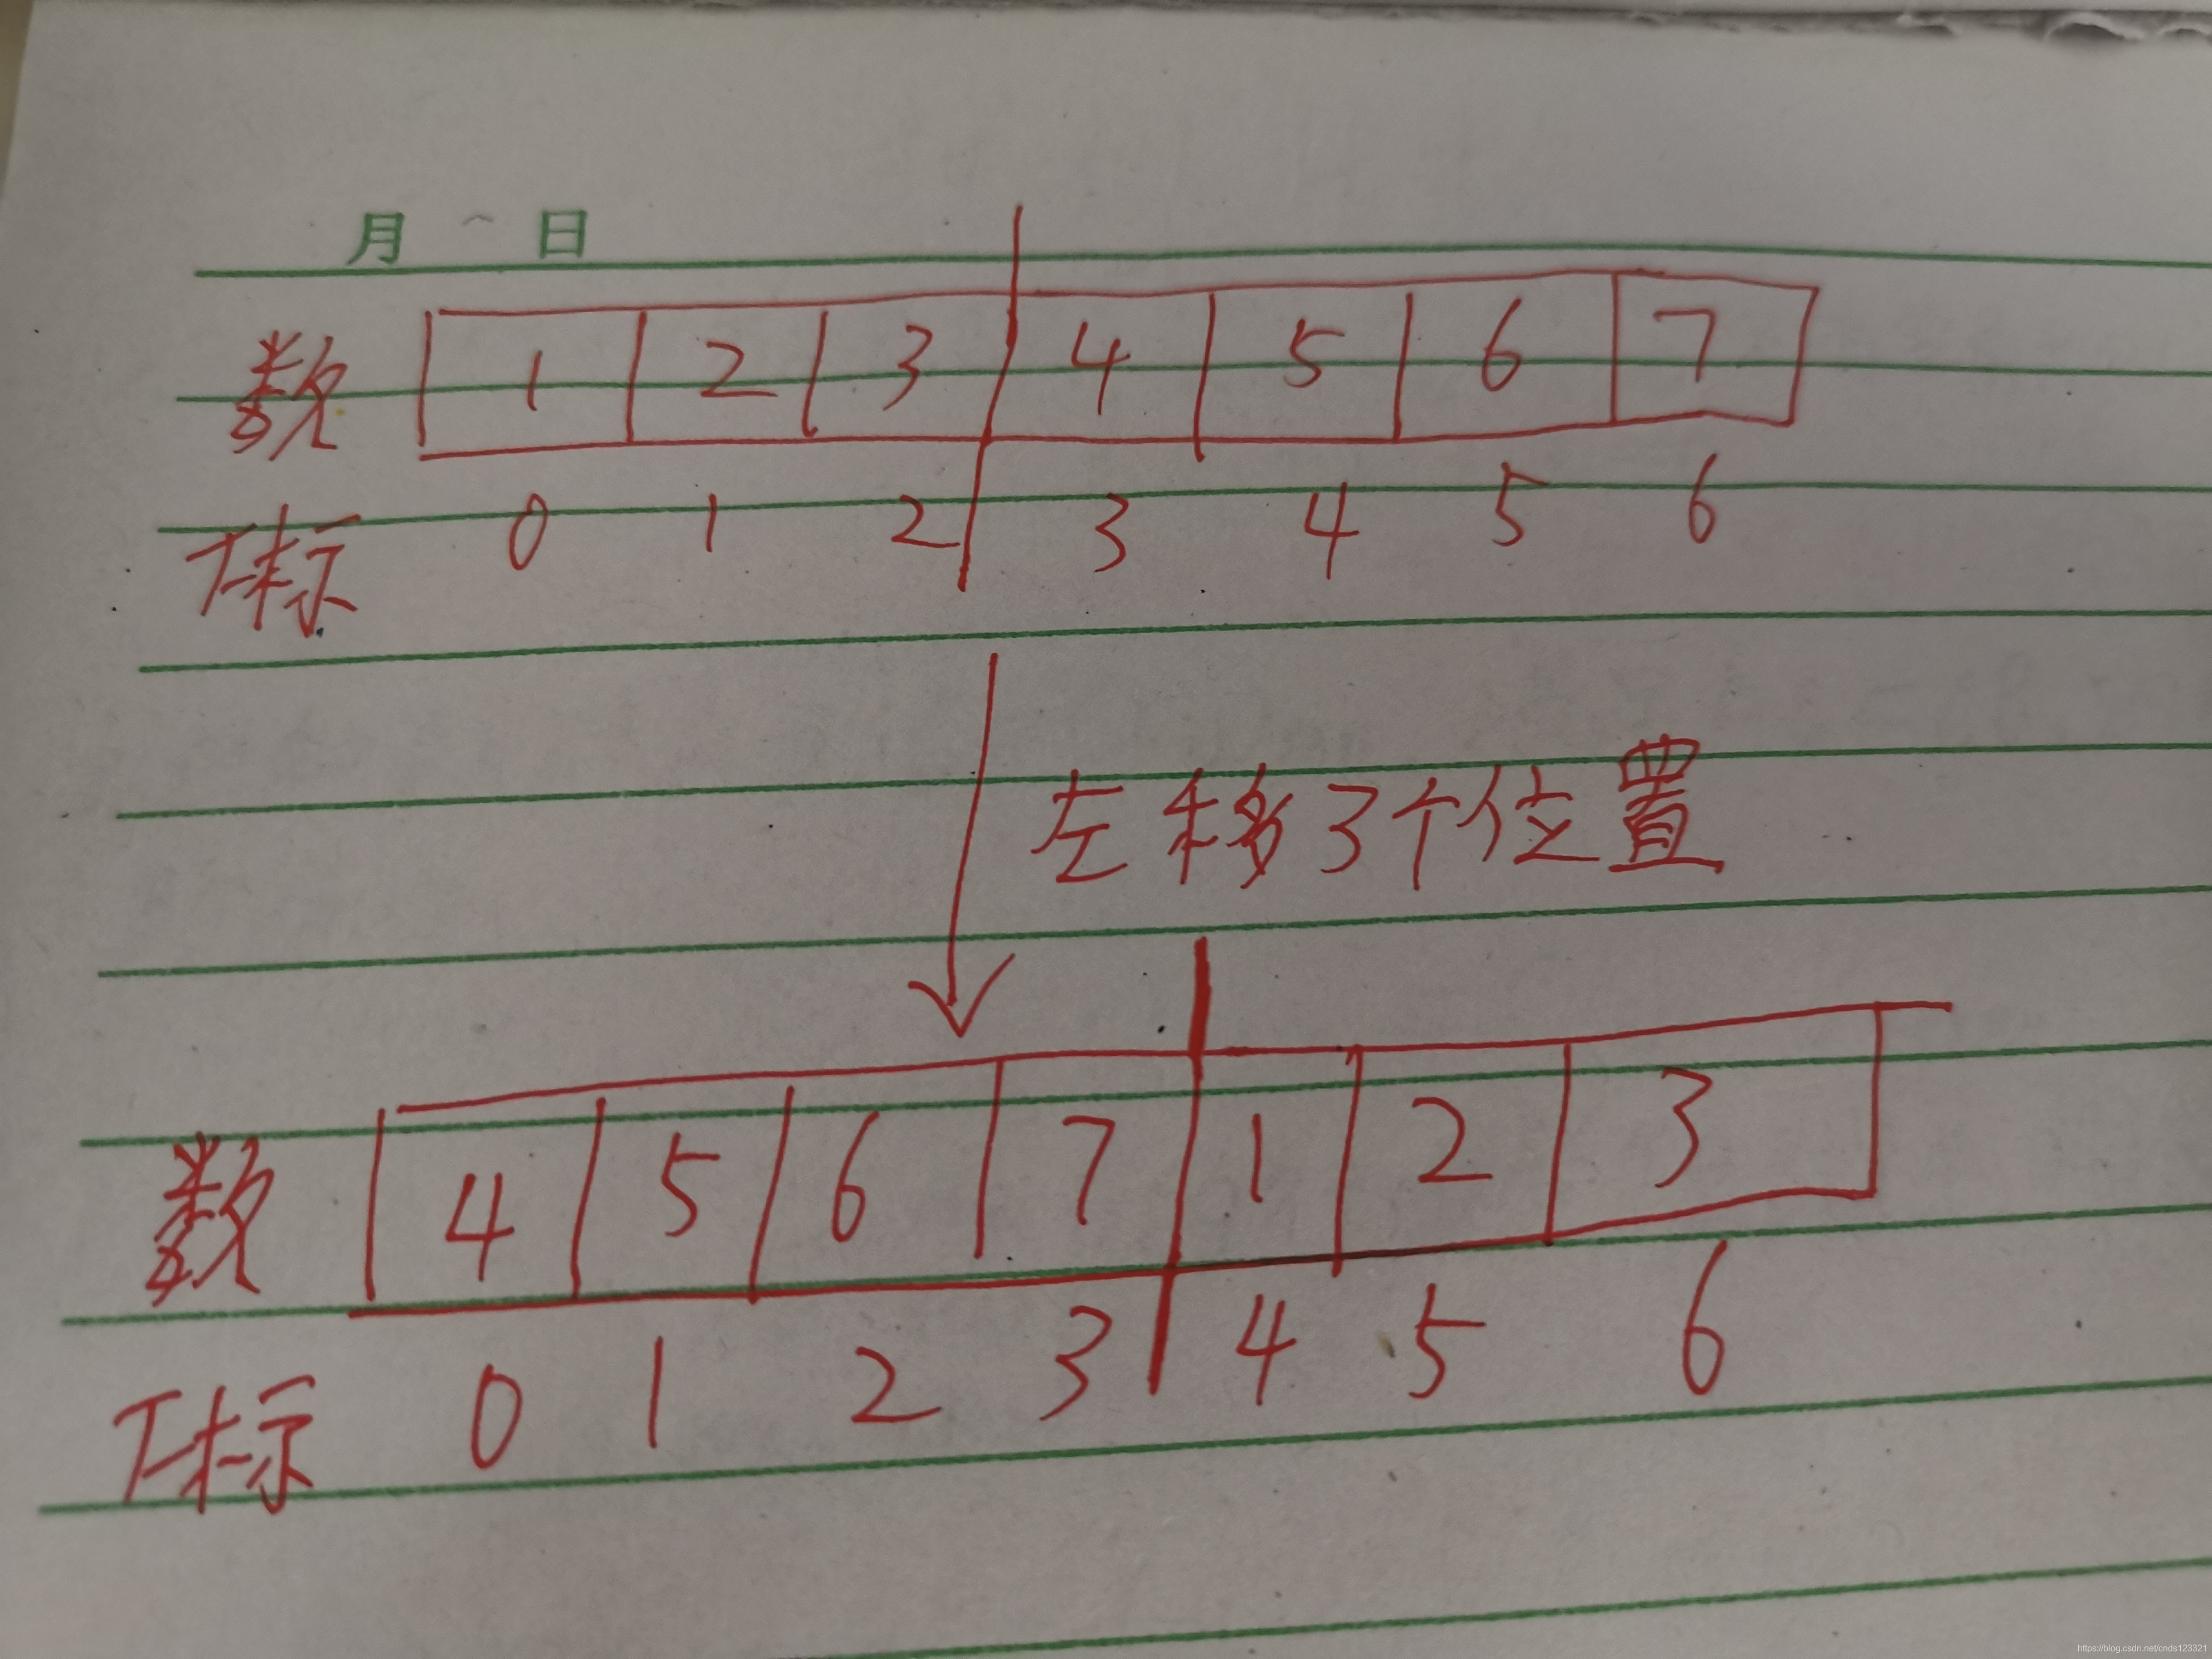 月 日
数 1 2 3 4 5 6 7
下标 0 1 2 3 4 5 6
左移3个位置
数 4 5 6 7 1 2 3
下标 0 1 2 3 4 5 6
https://blog.csdn.net/cnds123321